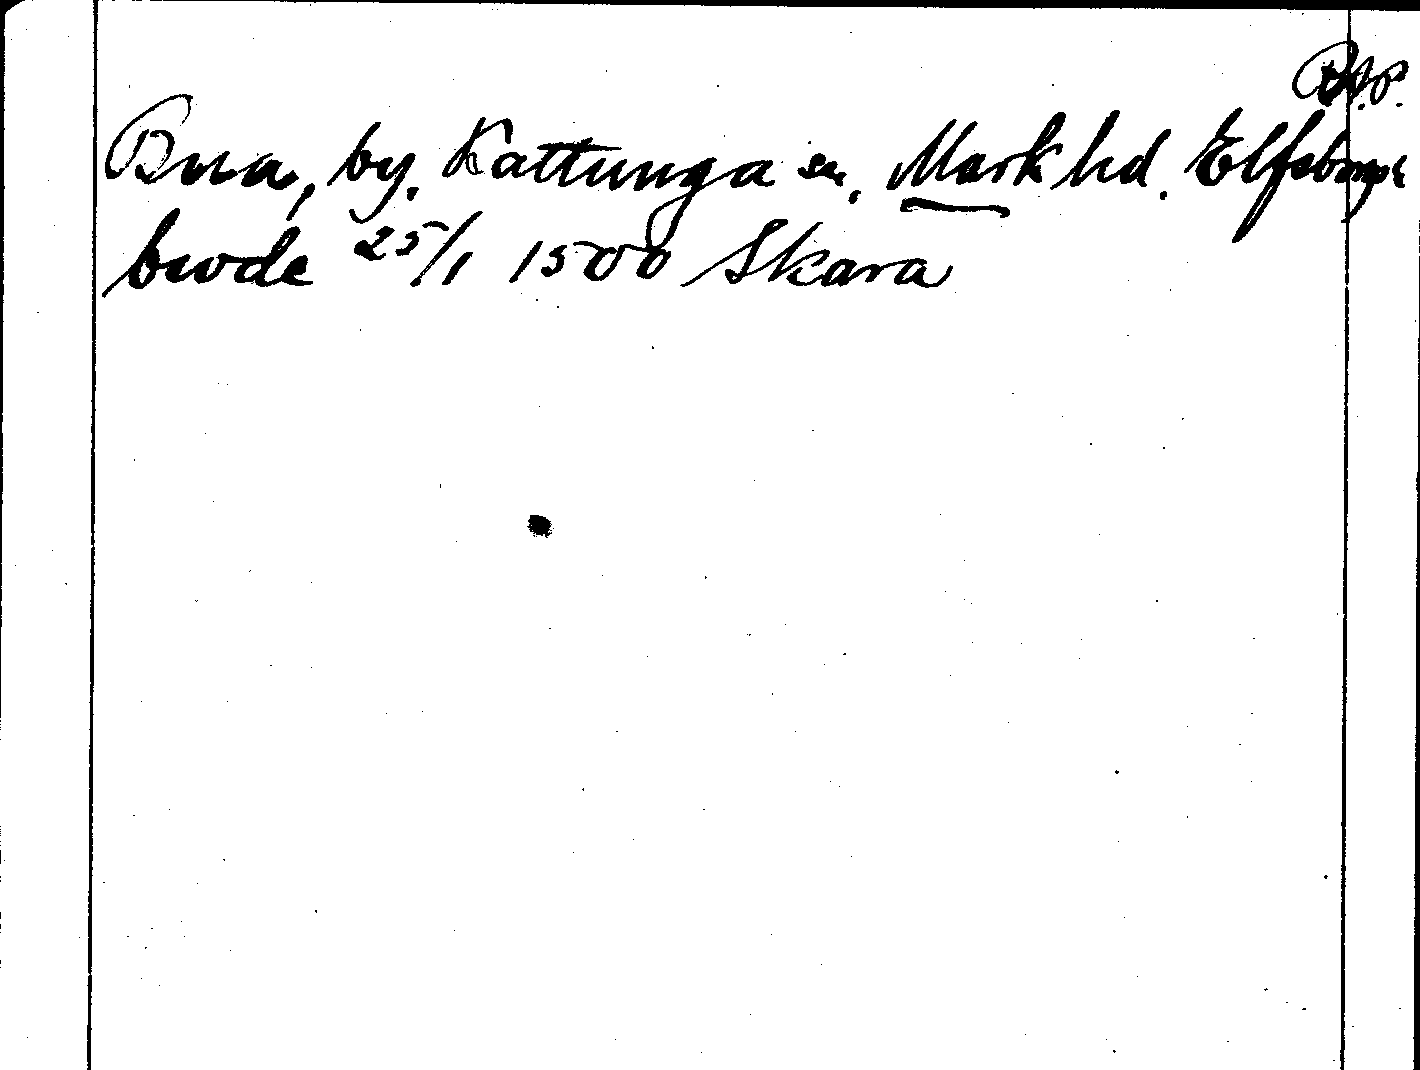 Bua, by. Kattunga sn. Mark hd. Elfsborgs l
bwode 25/1 1500 Skara